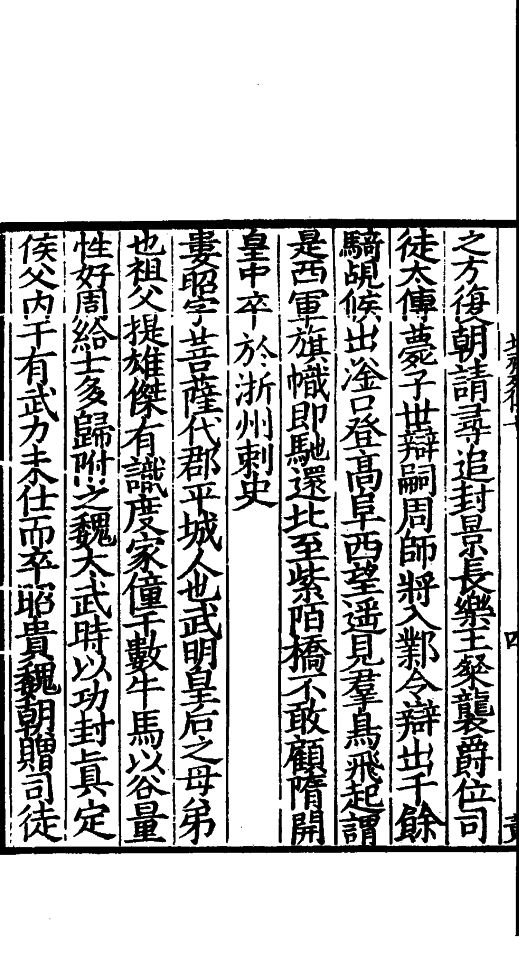 之方復朝請尋追封景長樂王粲襲爵位司
徒太傅薨子世辯嗣周師將入鄴令辯出千餘
騎覘候出滏口登高阜西望遥見羣鳥飛起謂
是西軍旗幟即馳還北至紫陌橋不敢顧隋開
皇中卒於浙州刺史
婁昭字菩薩代郡平城人也武明皇后之母弟
也祖父提雄傑有識度家僮千數牛馬以谷量
性好周給士多歸附之魏太武時以功封真定
侯父内干有武力未仕而卒昭貴魏朝贈司徒